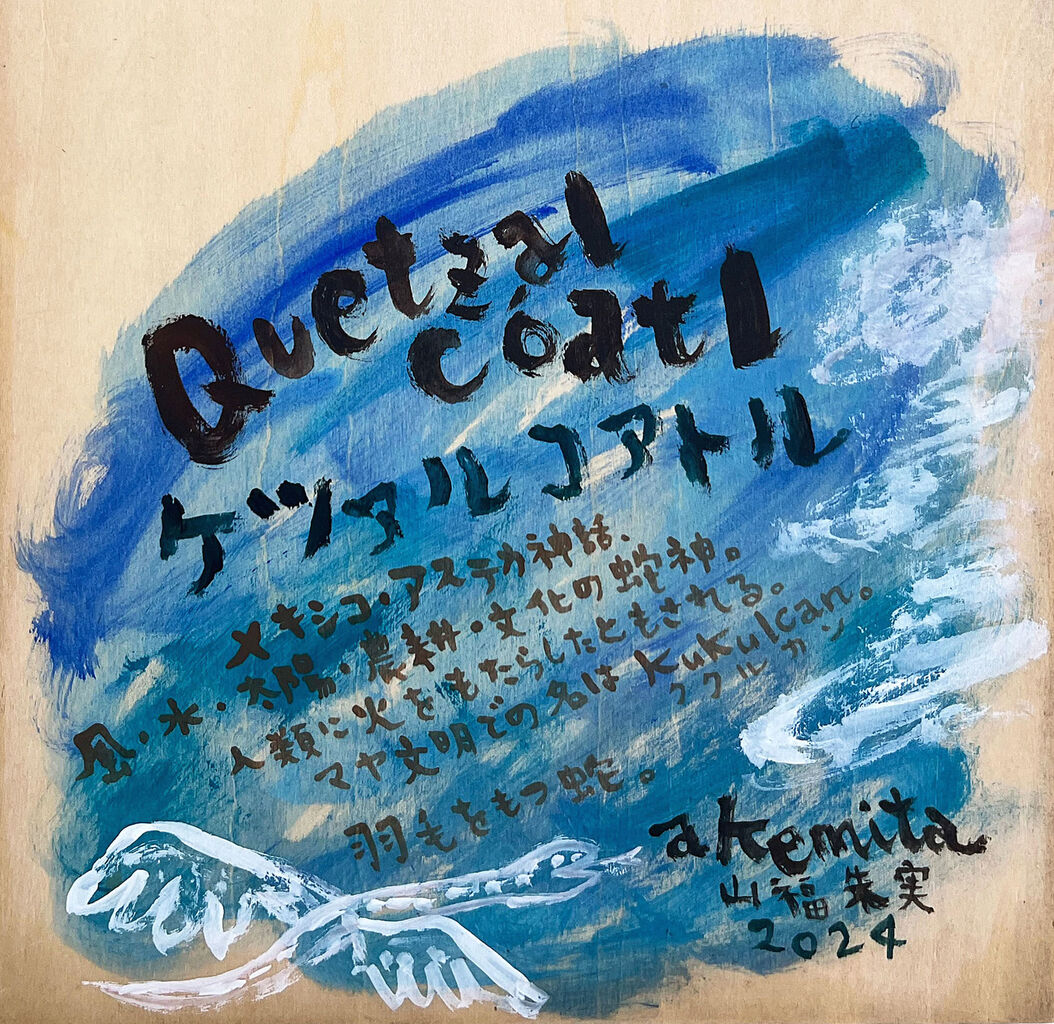 Quetzal
cóatl
ケツァルコアトル
メキシコ・アステカ神話、
風・水・太陽・農耕・文化の蛇神。
人類に火をもたらしたともされる。
マヤ文明での名は Kukulcan。
ククルカン
羽毛をもつ蛇。
akemita
山福朱実
2024